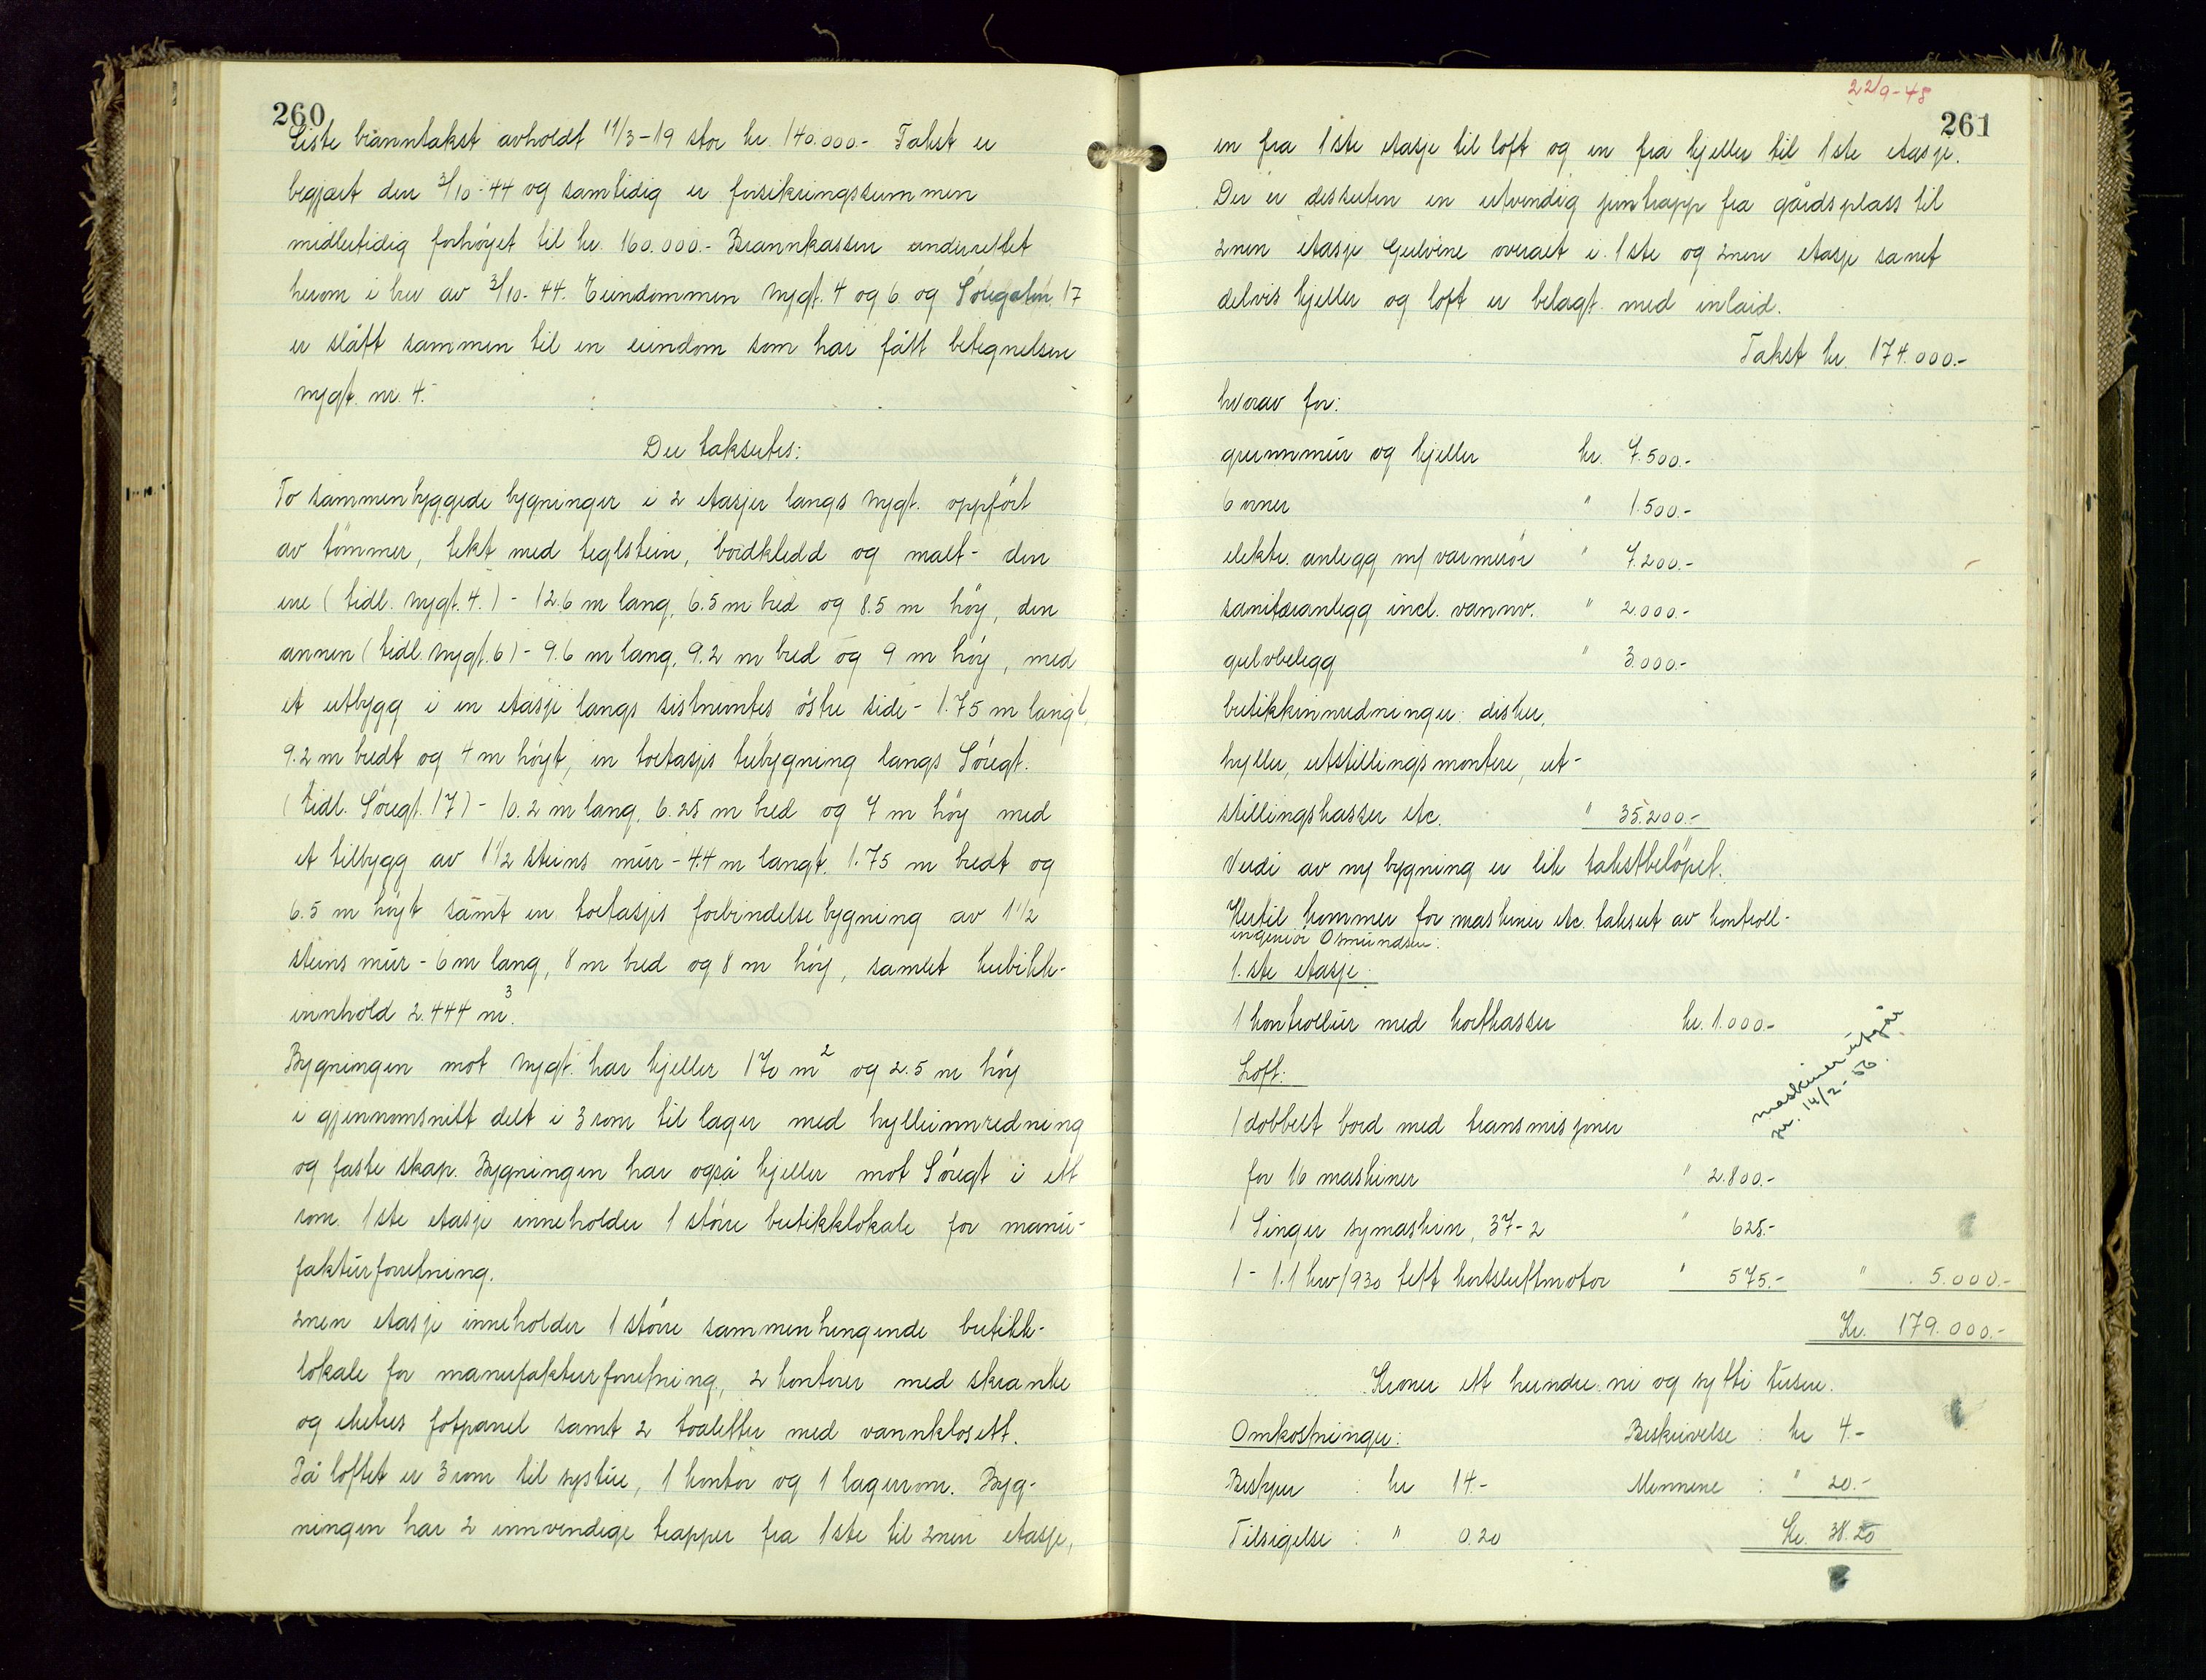 260
Siste branntakst avholdt 11/3-19 stor kr. 140.000.- Takst er
begjært den 3/10-44 og samtidig er forsikringssummen
midlertidig forhöyet til kr. 160.000.- Brannkassen underrettet
herom i brev av 3/10-44. Eiendommen Nygt. 4 og 6 og Sóregaten 17
er slått sammen til en eiendom som har fått betegnelsen
Nygt. nr. 4.-
Der takseres:
To sammenbyggede bygninger i 2 etasjer langs Nygt. oppfört
av tömmer, tekt med teglstein, bordkledd og malt - den
ene (tidl. Nygt. 4.) - 12.6 m lang, 6.5 m bred og 8.5 m höy, den
annen (tidl. Nygt. 6) - 9.6 m lang, 9.2 m bred og 9 m höy, med
et utbygg i en etasje langs sistnevntes östre side - 1.75 m langt,
9.2 m bredt og 4 m höyt, en toetasjes trebygning langs Söregt.
(tidl. Söregt. 17) - 10.2 m lang, 6.25 m bred og 7 m höy med
et tilbygg av 1 1/2 steins mur - 4.4 m langt, 1.75 m bredt og
6.5 m höyt samt en toetasjes forbindelsebygning av 1 1/2
steins mur - 6 m lang, 8 m bred og 8 m höy, samlet kubikk-
innhold 2.444 m³.
Bygningen mot Nygt. har kjeller 170 m² og 2.5 m höy
i gjennomsnitt delt i 3 rom til lager med hylleinnredning
og faste skap. Bygningen har også kjeller mot Söregt i ett
rom. 1ste etasje inneholder 1 större butikklokale for manu-
fakturforretning.
2nen etasje inneholder 1 större sammenhengende butikk-
lokale for manufakturforretning, 2 kontorer med skranke
og ekekes fotpanel samt 2 toaletter med vannklosett.
På loftet er 3 rom til systue, 1 kontor og 1 lagerrom. Byg-
ningen har 2 innvendige trapper fra 1ste til 2nen etasje,
22/9-48
261
en fra 1ste etasje til loft og en fra kjeller til 1ste etasje.
Der er dessuten en utvendig jerntrapp fra gårdsplass til
2nen etasje Gulvene overalt i 1ste og 2nen etasje samt
delvis kjeller og loft er belagt med inlaid.
Takst kr. 174.000.-
hvorav for:
grunnmur og kjeller kr. 7.500.-
6 ovner " 1.500.-
elektr. anlegg m/ varmerör " 7.200.-
sanitæranlegg incl. vannv. " 2.000.-
gulvbelegg " 3.000.-
butikkinnredninger: disker,
hyller, utstillingsmontere, ut-
stillingskasser etc. " 35.200.-
Verdi av ny bygning er lik takstbelöpet.
Hertil kommer for maskiner etc. taksert av kontroll-
ingeniör Osmundsen:
1.ste etasje:
1 kontrollur med kortkasser kr. 1.000.-
Loft:
maskiner utgår
1 dobbelt bord med transmisjoner
14/2-50.
for 16 maskiner " 2.800.-
1 Singer symaskin, 37-2 " 625.-
1 - 1.1 kw/930 tett kortsluttmotor " 575.- " 5.000.-
Kr. 179.000.-
Kroner ett hundre ni og sytti tusen.
Omkostninger: Beskrivelse : kr 4.-
Beskjær : kr 14.- Mennene : " 20.-
Tilsigelse : " 0.20 Kr. 38.20